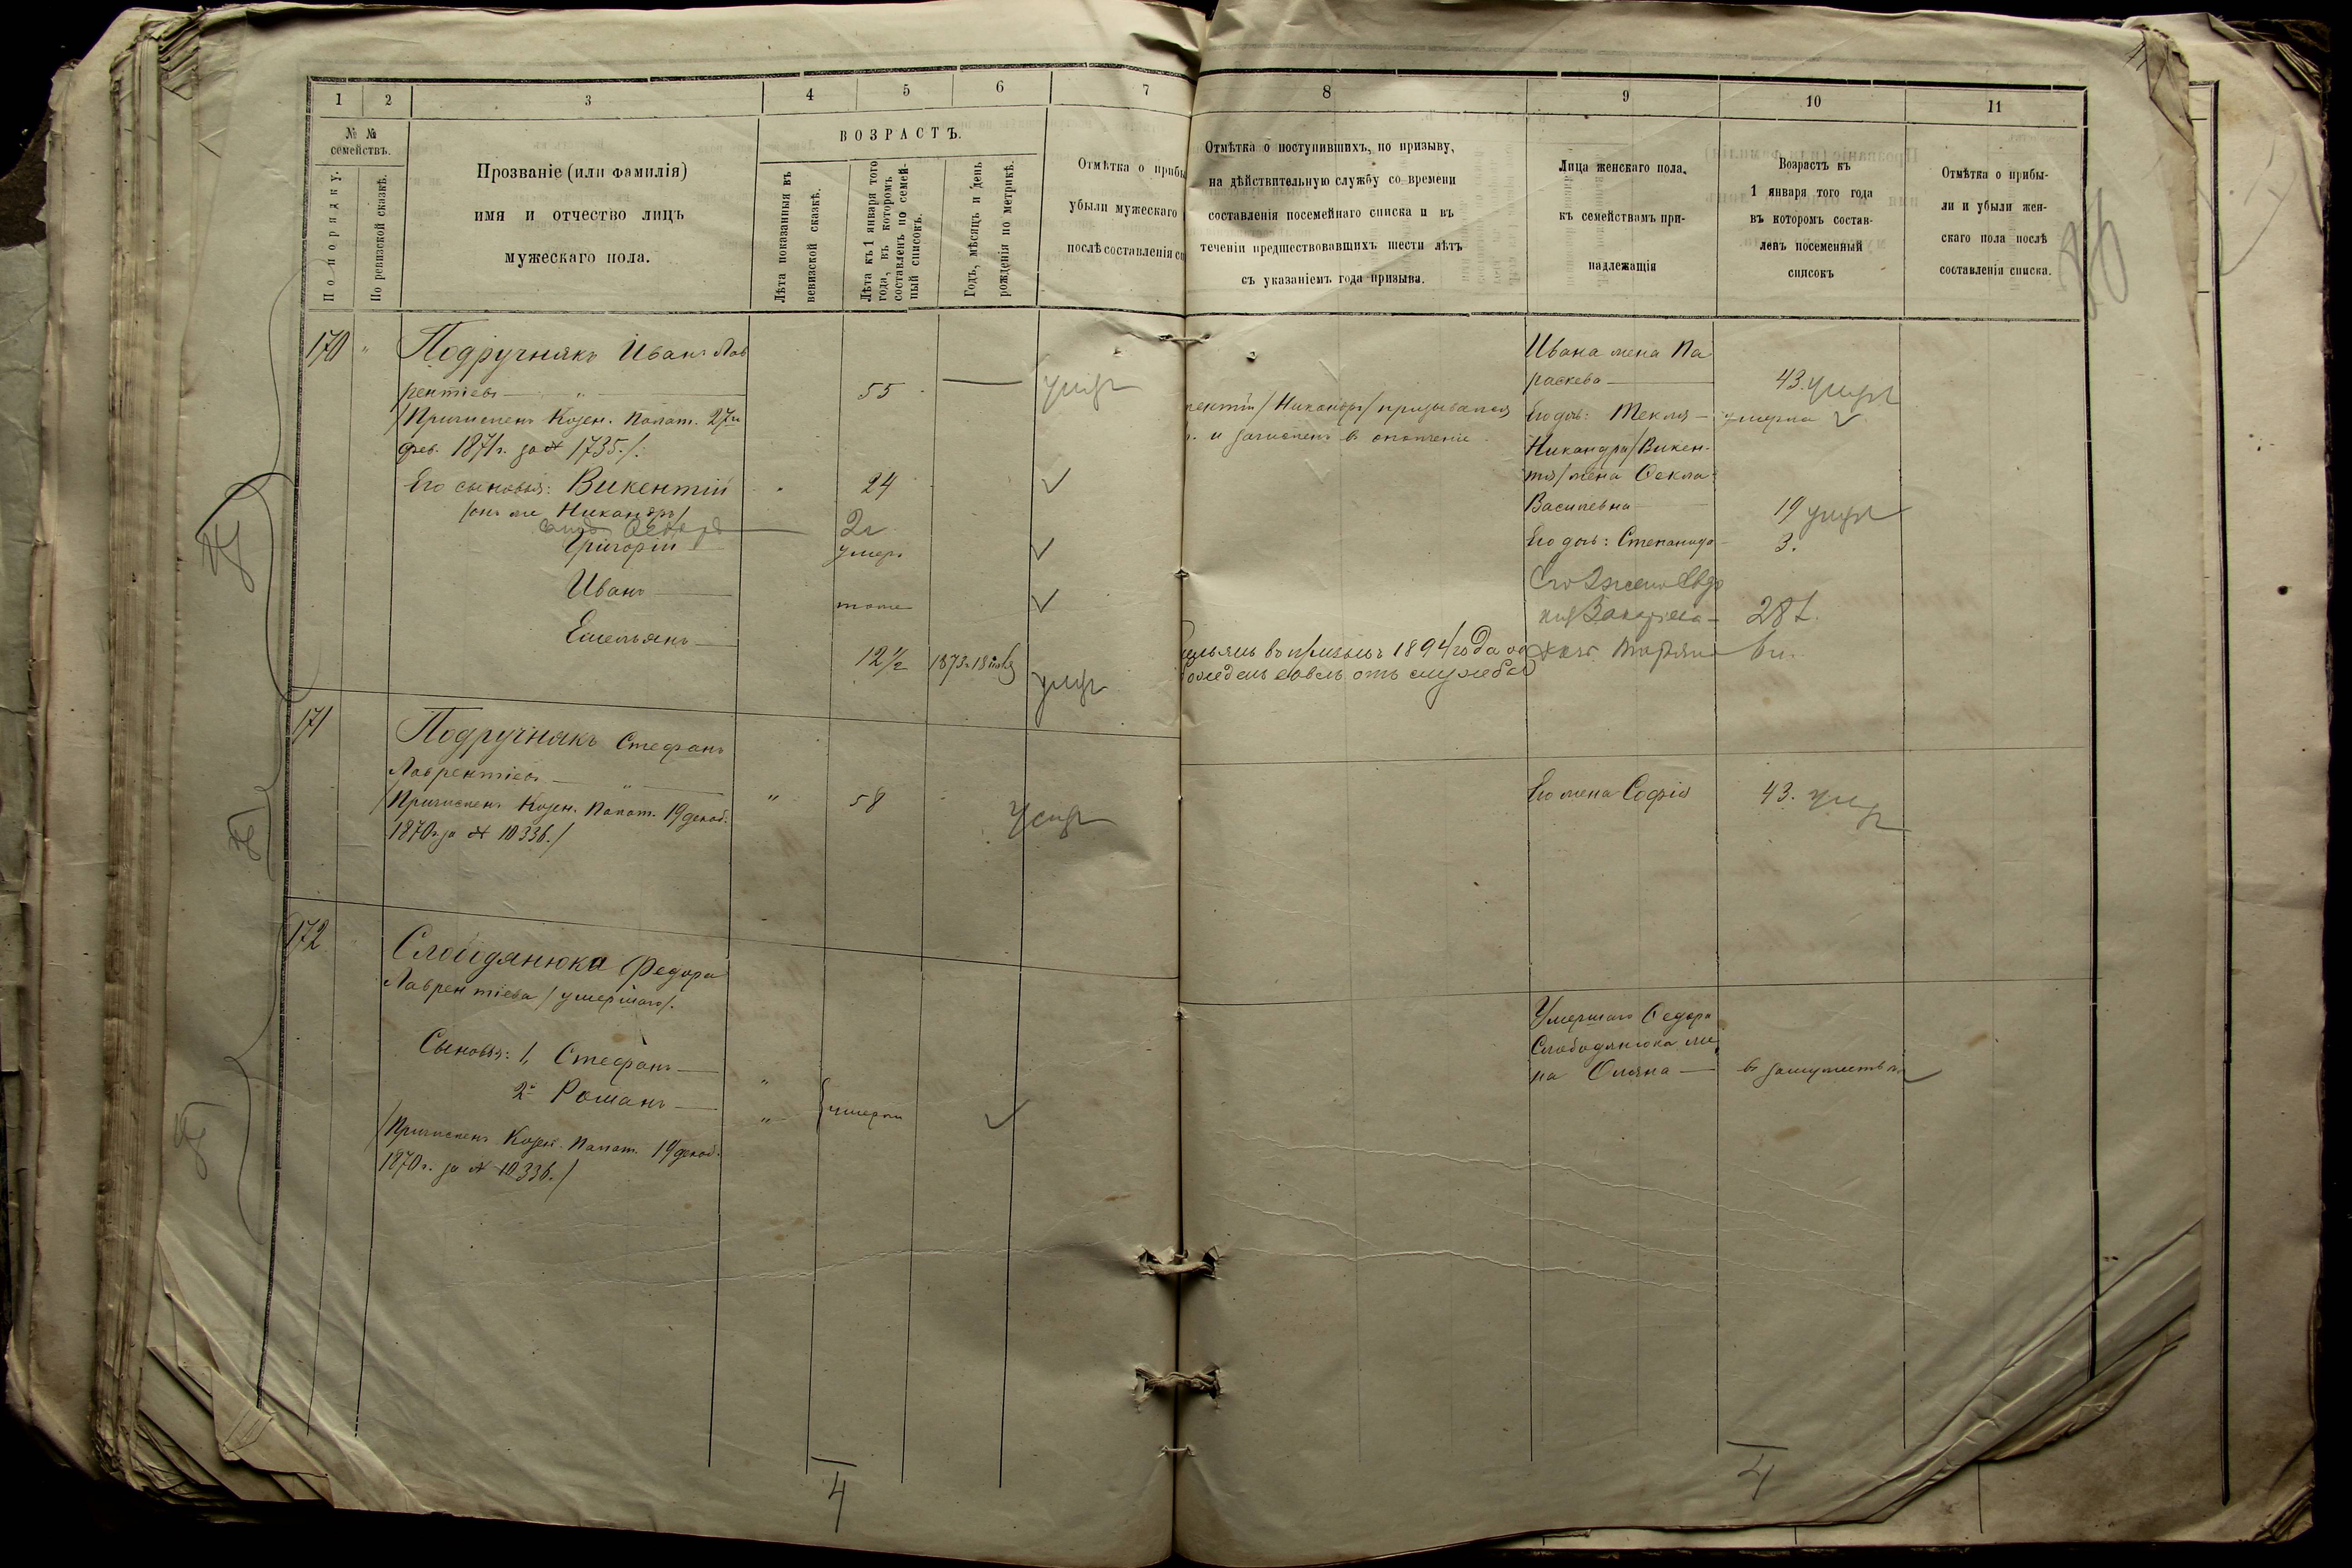 1 2 3 4 5 6 7 8 9 10 11
№ №
семействъ.
По порядку.
По ревизской сказкѣ.
Прозваніе (или фамилія)
имя и отчество лицъ
мужескаго пола.
ВОЗРАСТЪ.
Лѣта показанныя въ
вевизской сказкѣ.
Лѣта къ 1 января того
года, въ которомъ
составленъ по семей-
ный списокъ.
Годъ, мѣсяцъ и день
рожденія по метрикѣ.
Отмѣтка о прибы
убыли мужескаго
послѣ составленія сп
Отмѣтка о поступившихъ, по призыву,
на дѣйствительную службу со времени
составленія посемейнаго списка и въ
теченіи предшествовавшихъ шести лѣтъ
съ указаніемъ года призыва.
Лица женскаго пола,
къ семействамъ при-
надлежащія
Возрастъ къ
1 января того года
въ которомъ состав-
ленъ посеменный
списокъ
Отмѣтка о прибы-
ли и убыли жен-
скаго пола послѣ
составленія списка.
170 " Подручнякъ Иванъ Лав
рентіевъ — " — 55 — умер
(Причисленъ Казен. Палат. 27го
фев. 1871г. за № 1735./.
Его сыновья: Викентій " 24 ✓
/онъ же Никандръ/
сынъ Федоръ 2г
Григорій умеръ ✓
Иванъ — тоже ✓
Емельянъ — 12 1/2 1873г. 18 умер
рентій /Никандръ/ призывался
г. и зачисленъ въ ополченіе
ельянъ въ призывъ 1894 года ос
божденъ вовсь отъ службы
Ивана жена Па
раскева — 43. умер
Его дочь: Текля — умерла ✓
Никандра /Викен-
тія/ жена Фекла
Васильевна 19 умер
Его дочь: Степанида 3.
Его 2 жена Евдо
кія Захаріева — 28 л.
дочь Марьяна 6 л.
171 Подручнякъ Стефанъ
Лаврентіевъ — " —
(Причисленъ Казен. Палат. 19 декаб. " 58 умер
1870г. за № 10336./
Его жена Софія 43. умер
172 Слободянюка Федора
Лаврентіева /умершаго/.
Сыновья: 1, Стефанъ — "
2е Романъ — " } умерли ✓
(Причисленъ Казен. Палат. 19 декаб.
1870г. за № 10336./
Умершаго Федора
Слободянюка же
на Оляна — въ замужествѣ
4 4